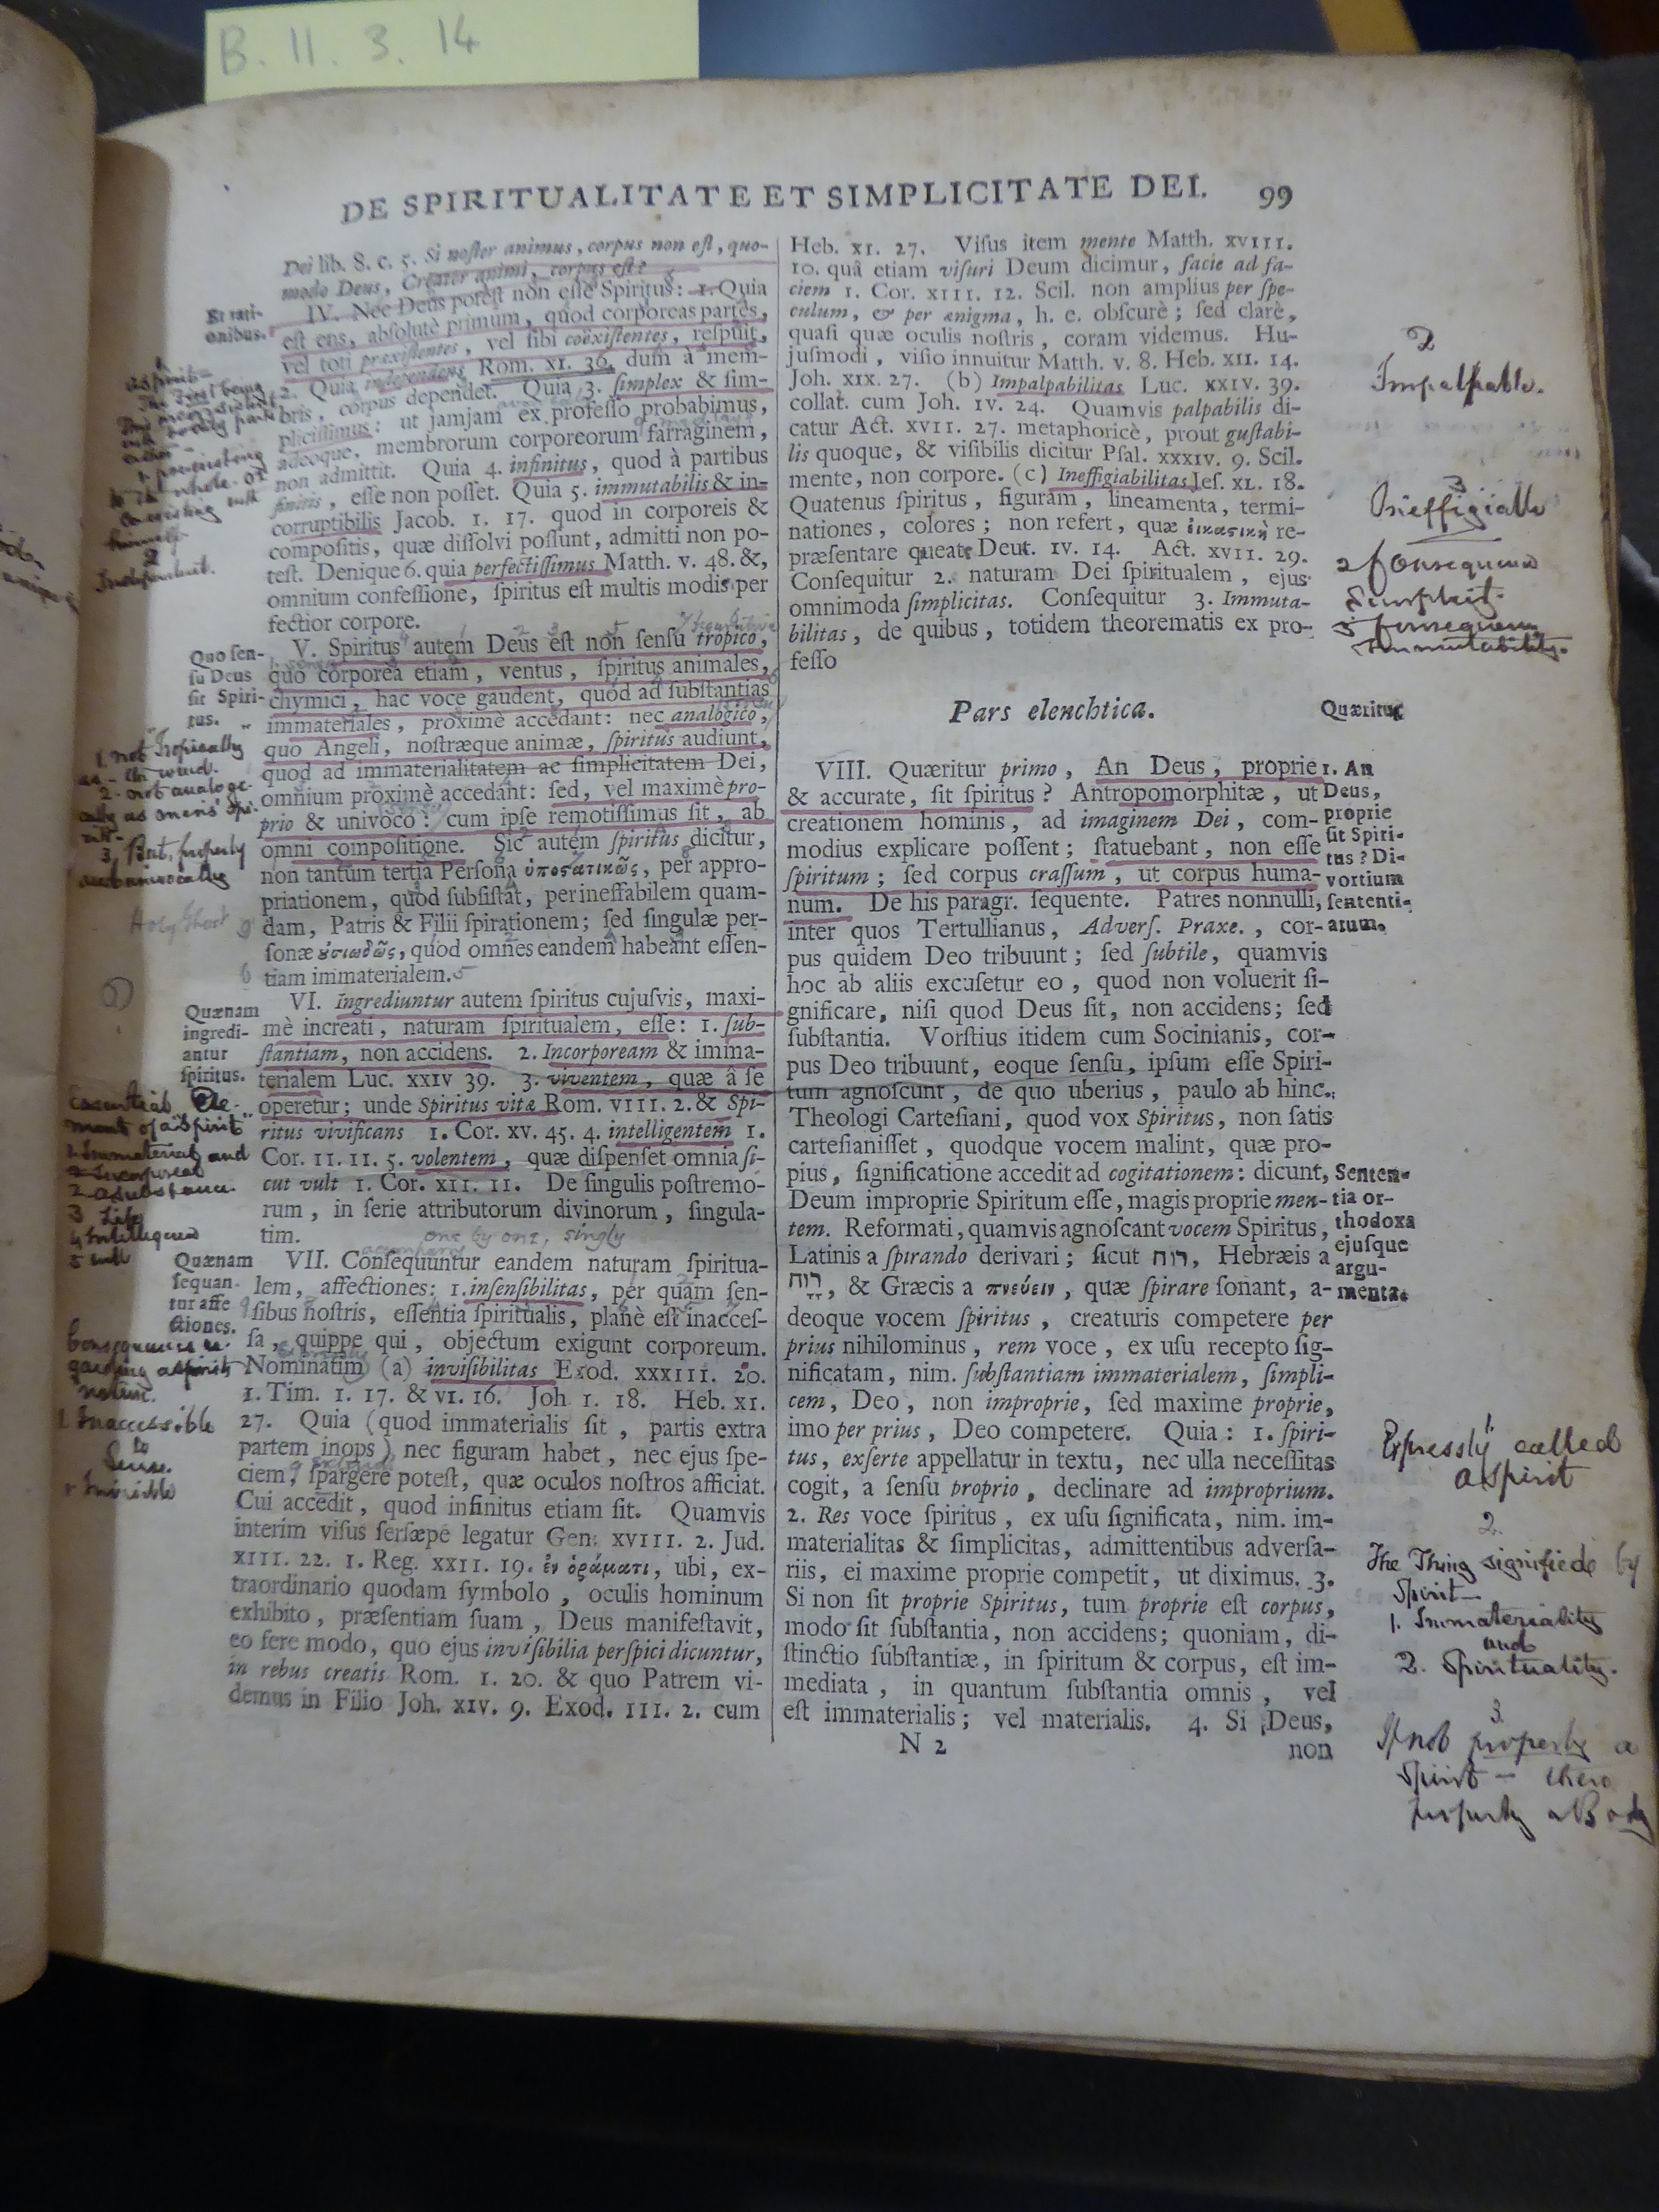 B. 11. 3. 14
DE SPIRITUALITATE ET SIMPLICITATE DEI. 99
Dei lib. 8. c. 5. Si noſter animus, corpus non eſt, quo-
modo Deus, Creator animi, corpus eſt?
IV. Nec Deus poteſt non eſſe Spiritus: 1. Quia
eſt ens, abſolutè primum, quod corporeas partes,
vel toti præexiſtentes, vel ſibi coëxiſtentes, reſpuit,
2. Quia independens Rom. XI. 36. dum à mem-
bris, corpus dependet. Quia 3. ſimplex & ſim-
pliciſſimus: ut jamjam ex profeſſo probabimus,
adeoque, membrorum corporeorum farraginem,
non admittit. Quia 4. infinitus, quod à partibus
finitis, eſſe non poſſet. Quia 5. immutabilis & in-
corruptibilis Jacob. I. 17. quod in corporeis &
compoſitis, quæ diſſolvi poſſunt, admitti non po-
teſt. Denique 6. quia perfectiſſimus Matth. v. 48. &,
omnium confeſſione, ſpiritus eſt multis modis per
fectior corpore.
V. Spiritus autem Deus eſt non ſenſu tropico,
quo corporea etiam, ventus, ſpiritus animales,
chymici, hac voce gaudent, quod ad ſubſtantias
immateriales, proximè accedant: nec analogico,
quo Angeli, noſtræque animæ, ſpiritus audiunt,
quod ad immaterialitatem ac ſimplicitatem Dei,
omnium proximè accedant: ſed, vel maximè pro-
prio & univoco: cum ipſe remotiſſimus ſit, ab
omni compoſitione. Sic autem ſpiritus dicitur,
non tantum tertia Perſona ὑποστατικῶς, per appro-
priationem, quod ſubſiſtat, per ineffabilem quam-
dam, Patris & Filii ſpirationem; ſed ſingulæ per-
ſonæ ȣ̓σιωδῶς, quod omnes eandem habeant eſſen-
tiam immaterialem.
VI. Ingrediuntur autem ſpiritus cujuſvis, maxi-
mè increati, naturam ſpiritualem, eſſe: 1. ſub-
ſtantiam, non accidens. 2. Incorpoream & imma-
terialem Luc. XXIV 39. 3. viventem, quæ â ſe
operetur; unde Spiritus vitæ Rom. VIII. 2. & Spi-
ritus vivificans 1. Cor. XV. 45. 4. intelligentem 1.
Cor. II. 11. 5. volentem, quæ diſpenſet omnia ſi-
cut vult 1. Cor. XII. 11. De ſingulis poſtremo-
rum, in ſerie attributorum divinorum, ſingula-
tim.
one by one, singly
VII. Conſequuntur eandem naturam ſpiritua-
lem, affectiones: 1. inſenſibilitas, per quam ſen-
ſibus noſtris, eſſentia ſpiritualis, planè eſt inacceſ-
ſa, quippe qui, objectum exigunt corporeum.
Nominatim (a) inviſibilitas Exod. XXXIII. 20.
1. Tim. I. 17. & VI. 16. Joh I. 18. Heb. XI.
27. Quia (quod immaterialis ſit, partis extra
partem inops) nec figuram habet, nec ejus ſpe-
ciem, ſpargere poteſt, quæ oculos noſtros afficiat.
Cui accedit, quod infinitus etiam ſit. Quamvis
interim viſus ſerſæpe legatur Gen. XVIII. 2. Jud.
XIII. 22. 1. Reg. XXII. 19. ἐν ὁράματι, ubi, ex-
traordinario quodam ſymbolo, oculis hominum
exhibito, præſentiam ſuam, Deus manifeſtavit,
eo fere modo, quo ejus inviſibilia perſpici dicuntur,
in rebus creatis Rom. I. 20. & quo Patrem vi-
demus in Filio Joh. XIV. 9. Exod. III. 2. cum
Et rati-
onibus.
2
Independent.
Quo ſen-
ſu Deus
ſit Spiri-
tus.
1. not Tropically
as - the wind.
2. not analogi-
cally as mens' spi-
rits -
3, But, properly
and univocally
Holy Ghost
Quænam
ingredi-
antur
ſpiritus.
Essential Ele-
ments of a "Spirit"
1. Immaterial and
Incorporeal
2 a substance.
3 Life
4 Intelligence
5 will
Quænam
ſequan-
tur affe
ctiones.
Consequences re-
garding a spirits
nature.
1 Inaccessible
to
Sense.
+ Invisible
Heb. XI. 27. Viſus item mente Matth. XVIII.
10. quâ etiam viſuri Deum dicimur, facie ad fa-
ciem 1. Cor. XIII. 12. Scil. non amplius per ſpe-
culum, & per ænigma, h. e. obſcurè; ſed clarè,
quaſi quæ oculis noſtris, coram videmus. Hu-
juſmodi, viſio innuitur Matth. v. 8. Heb. XII. 14.
Joh. XIX. 27. (b) Impalpabilitas Luc. XXIV. 39.
collat. cum Joh. IV. 24. Quamvis palpabilis di-
catur Act. XVII. 27. metaphoricè, prout guſtabi-
lis quoque, & viſibilis dicitur Pſal. XXXIV. 9. Scil.
mente, non corpore. (c) Ineffigiabilitas Jeſ. XL. 18.
Quatenus ſpiritus, figuram, lineamenta, termi-
nationes, colores; non refert, quæ εἰκαστικὴ re-
præſentare queat Deut. IV. 14. Act. XVII. 29.
Conſequitur 2. naturam Dei ſpiritualem, ejus
omnimoda ſimplicitas. Conſequitur 3. Immuta-
bilitas, de quibus, totidem theorematis ex pro-
feſſo
Pars elenchtica.
VIII. Quæritur primo, An Deus, proprie
& accurate, ſit ſpiritus? Antropomorphitæ, ut
creationem hominis, ad imaginem Dei, com-
modius explicare poſſent; ſtatuebant, non eſſe
ſpiritum; ſed corpus craſſum, ut corpus huma-
num. De his paragr. ſequente. Patres nonnulli,
inter quos Tertullianus, Adverſ. Praxe., cor-
pus quidem Deo tribuunt; ſed ſubtile, quamvis
hoc ab aliis excuſetur eo, quod non voluerit ſi-
gnificare, niſi quod Deus ſit, non accidens; ſed
ſubſtantia. Vorſtius itidem cum Socinianis, cor-
pus Deo tribuunt, eoque ſenſu, ipſum eſſe Spiri-
tum agnoſcunt, de quo uberius, paulo ab hinc.
Theologi Carteſiani, quod vox Spiritus, non ſatis
carteſianiſſet, quodque vocem malint, quæ pro-
pius, ſignificatione accedit ad cogitationem: dicunt,
Deum improprie Spiritum eſſe, magis proprie men-
tem. Reformati, quamvis agnoſcant vocem Spiritus,
Latinis a ſpirando derivari; ſicut רוח, Hebræis a
רוח, & Græcis a πνεύειν, quæ ſpirare ſonant, a-
deoque vocem ſpiritus, creaturis competere per
prius nihilominus, rem voce, ex uſu recepto ſig-
nificatam, nim. ſubſtantiam immaterialem, ſimpli-
cem, Deo, non improprie, ſed maxime proprie,
imo per prius, Deo competere. Quia: 1. ſpiri-
tus, exſerte appellatur in textu, nec ulla neceſſitas
cogit, a ſenſu proprio, declinare ad improprium.
2. Res voce ſpiritus, ex uſu ſignificata, nim. im-
materialitas & ſimplicitas, admittentibus adverſa-
riis, ei maxime proprie competit, ut diximus. 3.
Si non ſit proprie Spiritus, tum proprie eſt corpus,
modo ſit ſubſtantia, non accidens; quoniam, di-
ſtinctio ſubſtantiæ, in ſpiritum & corpus, eſt im-
mediata, in quantum ſubſtantia omnis, vel
eſt immaterialis; vel materialis. 4. Si Deus,
N 2
non
2
Impalpable.
3
Ineffigiable
2 Consequence
Simplicity.
3 Consequence
Immutability.
Quæritur
1. An
Deus,
proprie
ſit Spiri-
tus? Di-
vortium
ſententi-
arum.
Senten-
tia or-
thodoxa
ejuſque
argu-
menta.
1
Expressly called
a Spirit
2.
The Thing signified by
Spirit -
1. Immateriality
and
2. Spirituality.
3.
If not properly a
Spirit - then
properly a Body